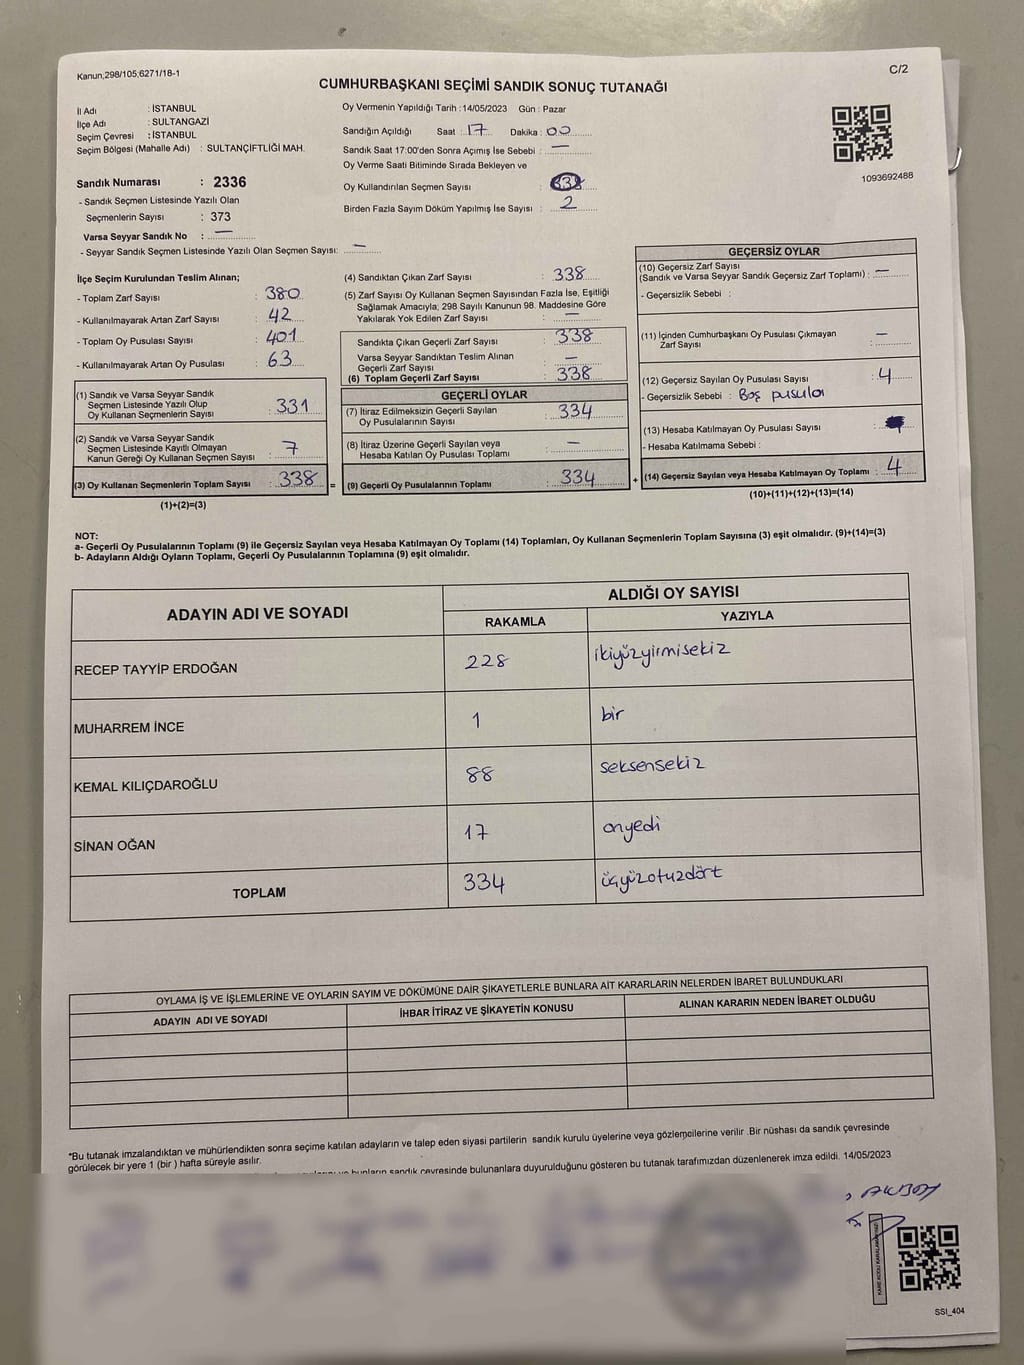 Kanun;298/105;6271/18-1
C/2
CUMHURBAŞKANI SEÇİMİ SANDIK SONUÇ TUTANAĞI
İl Adı : İSTANBUL
İlçe Adı : SULTANGAZİ
Seçim Çevresi : İSTANBUL
Seçim Bölgesi (Mahalle Adı) : SULTANÇİFTLİĞİ MAH.
Sandık Numarası : 2336
- Sandık Seçmen Listesinde Yazılı Olan
Seçmenlerin Sayısı : 373
Varsa Seyyar Sandık No : —
- Seyyar Sandık Seçmen Listesinde Yazılı Olan Seçmen Sayısı: —
Oy Vermenin Yapıldığı Tarih :14/05/2023 Gün : Pazar
Sandığın Açıldığı Saat : 17 Dakika : 00
Sandık Saat 17:00'den Sonra Açımış İse Sebebi : —
Oy Verme Saati Bitiminde Sırada Bekleyen ve
Oy Kullandırılan Seçmen Sayısı :
Birden Fazla Sayım Döküm Yapılmış İse Sayısı : 2
1093692488
İlçe Seçim Kurulundan Teslim Alınan;
- Toplam Zarf Sayısı : 380
- Kullanılmayarak Artan Zarf Sayısı : 42
- Toplam Oy Pusulası Sayısı : 401
- Kullanılmayarak Artan Oy Pusulası : 63
(1) Sandık ve Varsa Seyyar Sandık
Seçmen Listesinde Yazılı Olup
Oy Kullanan Seçmenlerin Sayısı : 331
(2) Sandık ve Varsa Seyyar Sandık
Seçmen Listesinde Kayıtlı Olmayan
Kanun Gereği Oy Kullanan Seçmen Sayısı : 7
(3) Oy Kullanan Seçmenlerin Toplam Sayısı : 338 =
(1)+(2)=(3)
(4) Sandıktan Çıkan Zarf Sayısı : 338
(5) Zarf Sayısı Oy Kullanan Seçmen Sayısından Fazla İse, Eşitliği
Sağlamak Amacıyla; 298 Sayılı Kanunun 98. Maddesine Göre
Yakılarak Yok Edilen Zarf Sayısı : —
Sandıkta Çıkan Geçerli Zarf Sayısı : 338
Varsa Seyyar Sandıktan Teslim Alınan
Geçerli Zarf Sayısı : —
(6) Toplam Geçerli Zarf Sayısı : 338
GEÇERLİ OYLAR
(7) İtiraz Edilmeksizin Geçerli Sayılan
Oy Pusulalarının Sayısı : 334
(8) İtiraz Üzerine Geçerli Sayılan veya
Hesaba Katılan Oy Pusulası Toplamı : —
(9) Geçerli Oy Pusulalarının Toplamı : 334 +
GEÇERSİZ OYLAR
(10) Geçersiz Zarf Sayısı
(Sandık ve Varsa Seyyar Sandık Geçersiz Zarf Toplamı) : —
- Geçersizlik Sebebi :
(11) İçinden Cumhurbaşkanı Oy Pusulası Çıkmayan
Zarf Sayısı : —
(12) Geçersiz Sayılan Oy Pusulası Sayısı : 4
- Geçersizlik Sebebi : Boş pusula
(13) Hesaba Katılmayan Oy Pusulası Sayısı :
- Hesaba Katılmama Sebebi :
(14) Geçersiz Sayılan veya Hesaba Katılmayan Oy Toplamı : 4
(10)+(11)+(12)+(13)=(14)
NOT:
a- Geçerli Oy Pusulalarının Toplamı (9) ile Geçersiz Sayılan veya Hesaba Katılmayan Oy Toplamı (14) Toplamları, Oy Kullanan Seçmenlerin Toplam Sayısına (3) eşit olmalıdır. (9)+(14)=(3)
b- Adayların Aldığı Oyların Toplamı, Geçerli Oy Pusulalarının Toplamına (9) eşit olmalıdır.
ADAYIN ADI VE SOYADI
ALDIĞI OY SAYISI
RAKAMLA YAZIYLA
RECEP TAYYİP ERDOĞAN 228 ikiyüzyirmisekiz
MUHARREM İNCE 1 bir
KEMAL KILIÇDAROĞLU 88 seksensekiz
SİNAN OĞAN 17 onyedi
TOPLAM 334 üçyüzotuzdört
OYLAMA İŞ VE İŞLEMLERİNE VE OYLARIN SAYIM VE DÖKÜMÜNE DAİR ŞİKAYETLERLE BUNLARA AİT KARARLARIN NELERDEN İBARET BULUNDUKLARI
ADAYIN ADI VE SOYADI İHBAR İTİRAZ VE ŞİKAYETİN KONUSU ALINAN KARARIN NEDEN İBARET OLDUĞU
*Bu tutanak imzalandıktan ve mühürlendikten sonra seçime katılan adayların ve talep eden siyasi partilerin sandık kurulu üyelerine veya gözlemcilerine verilir .Bir nüshası da sandık çevresinde
görülecek bir yere 1 (bir ) hafta süreyle asılır.
bunların sandık çevresinde bulunanlara duyurulduğunu gösteren bu tutanak tarafımızdan düzenlenerek imza edildi. 14/05/2023
SSI_404